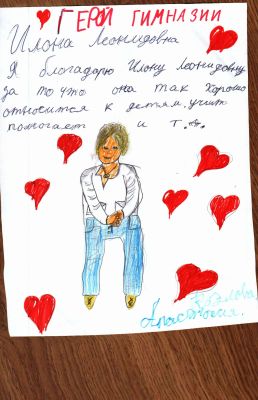 ГЕРОЙ ГИМНАЗИИ
Илона Леонидовна
Я блогадарю Илону Леонидовну
за то что она так хорошо
относится к детям, учит
помогает и т.д.
Анастасия.